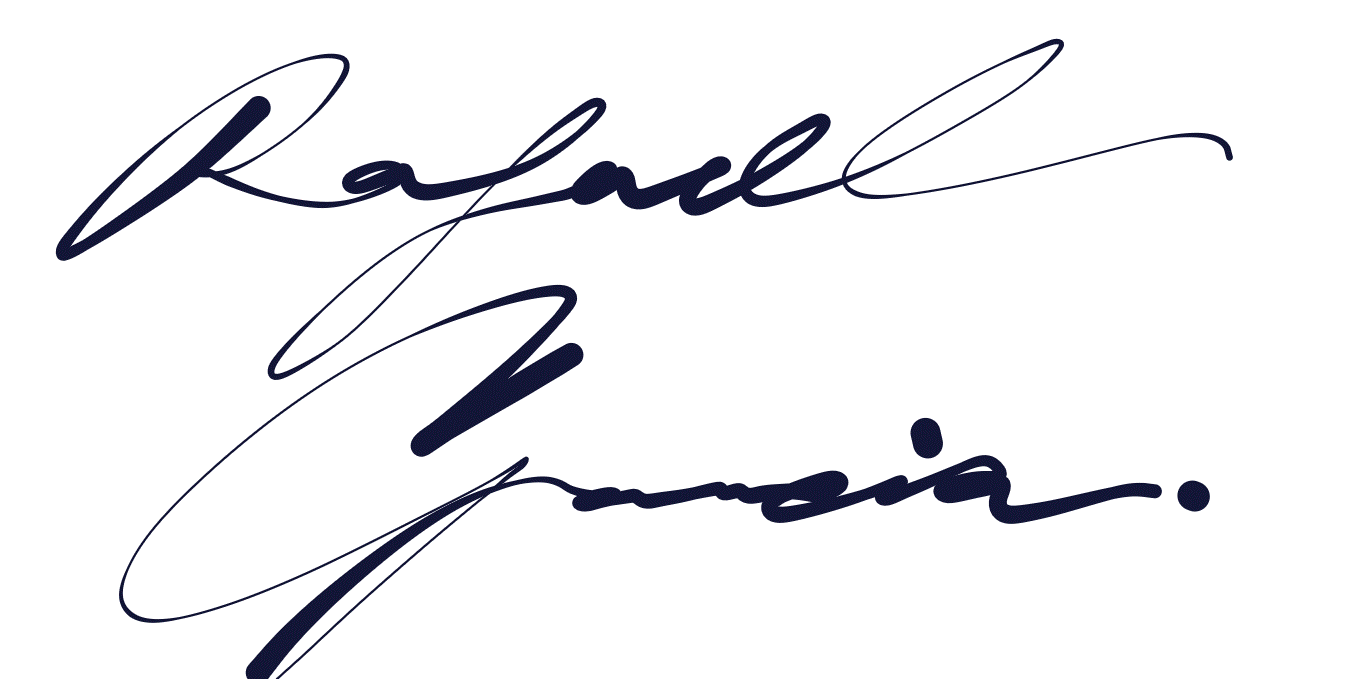 Rafael
Garcia.